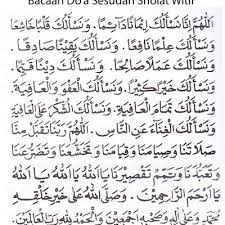 Bacaan Do'a Sesudah Sholat Witir
اَللّٰهُمَّ اِنَّا نَسْأَلُكَ اِيْمَانًا دَائِمًا. وَنَسْأَلُكَ قَلْبًا خَاشِعًا
وَنَسْأَلُكَ عِلْمًا نَافِعًا. وَنَسْأَلُكَ يَقِيْنًا صَادِقًا.
وَنَسْأَلُكَ عَمَلًا صَالِحًا. وَنَسْأَلُكَ دِيْنًا قَيِّمًا.
وَنَسْأَلُكَ خَيْرًا كَثِيْرًا. وَنَسْأَلُكَ الْعَفْوَ وَالْعَافِيَةَ.
وَنَسْأَلُكَ تَمَامَ الْعَافِيَةِ. وَنَسْأَلُكَ الشُّكْرَ عَلَى الْعَافِيَةِ.
وَنَسْأَلُكَ الْغِنَاءَ عَنِ النَّاسِ. اَللّٰهُمَّ رَبَّنَا تَقَبَّلْ مِنَّا
صَلَاتَنَا وَصِيَامَنَا وَقِيَامَنَا وَتَخَشُّعَنَا وَتَضَرُّعَنَا
وَتَعَبُّدَنَا وَتَمِّمْ تَقْصِيْرَنَا يَا اَللهُ يَا اَللهُ يَا اَللهُ
يَا اَرْحَمَ الرَّاحِمِيْنَ. وَصَلَّى اللهُ عَلَى خَيْرِ خَلْقِهِ
مُحَمَّدٍ وَعَلَى اٰلِهِ وَصَحْبِهِ اَجْمَعِيْنَ وَالْحَمْدُ لِلّٰهِ رَبِّ الْعَالَمِيْنَ.